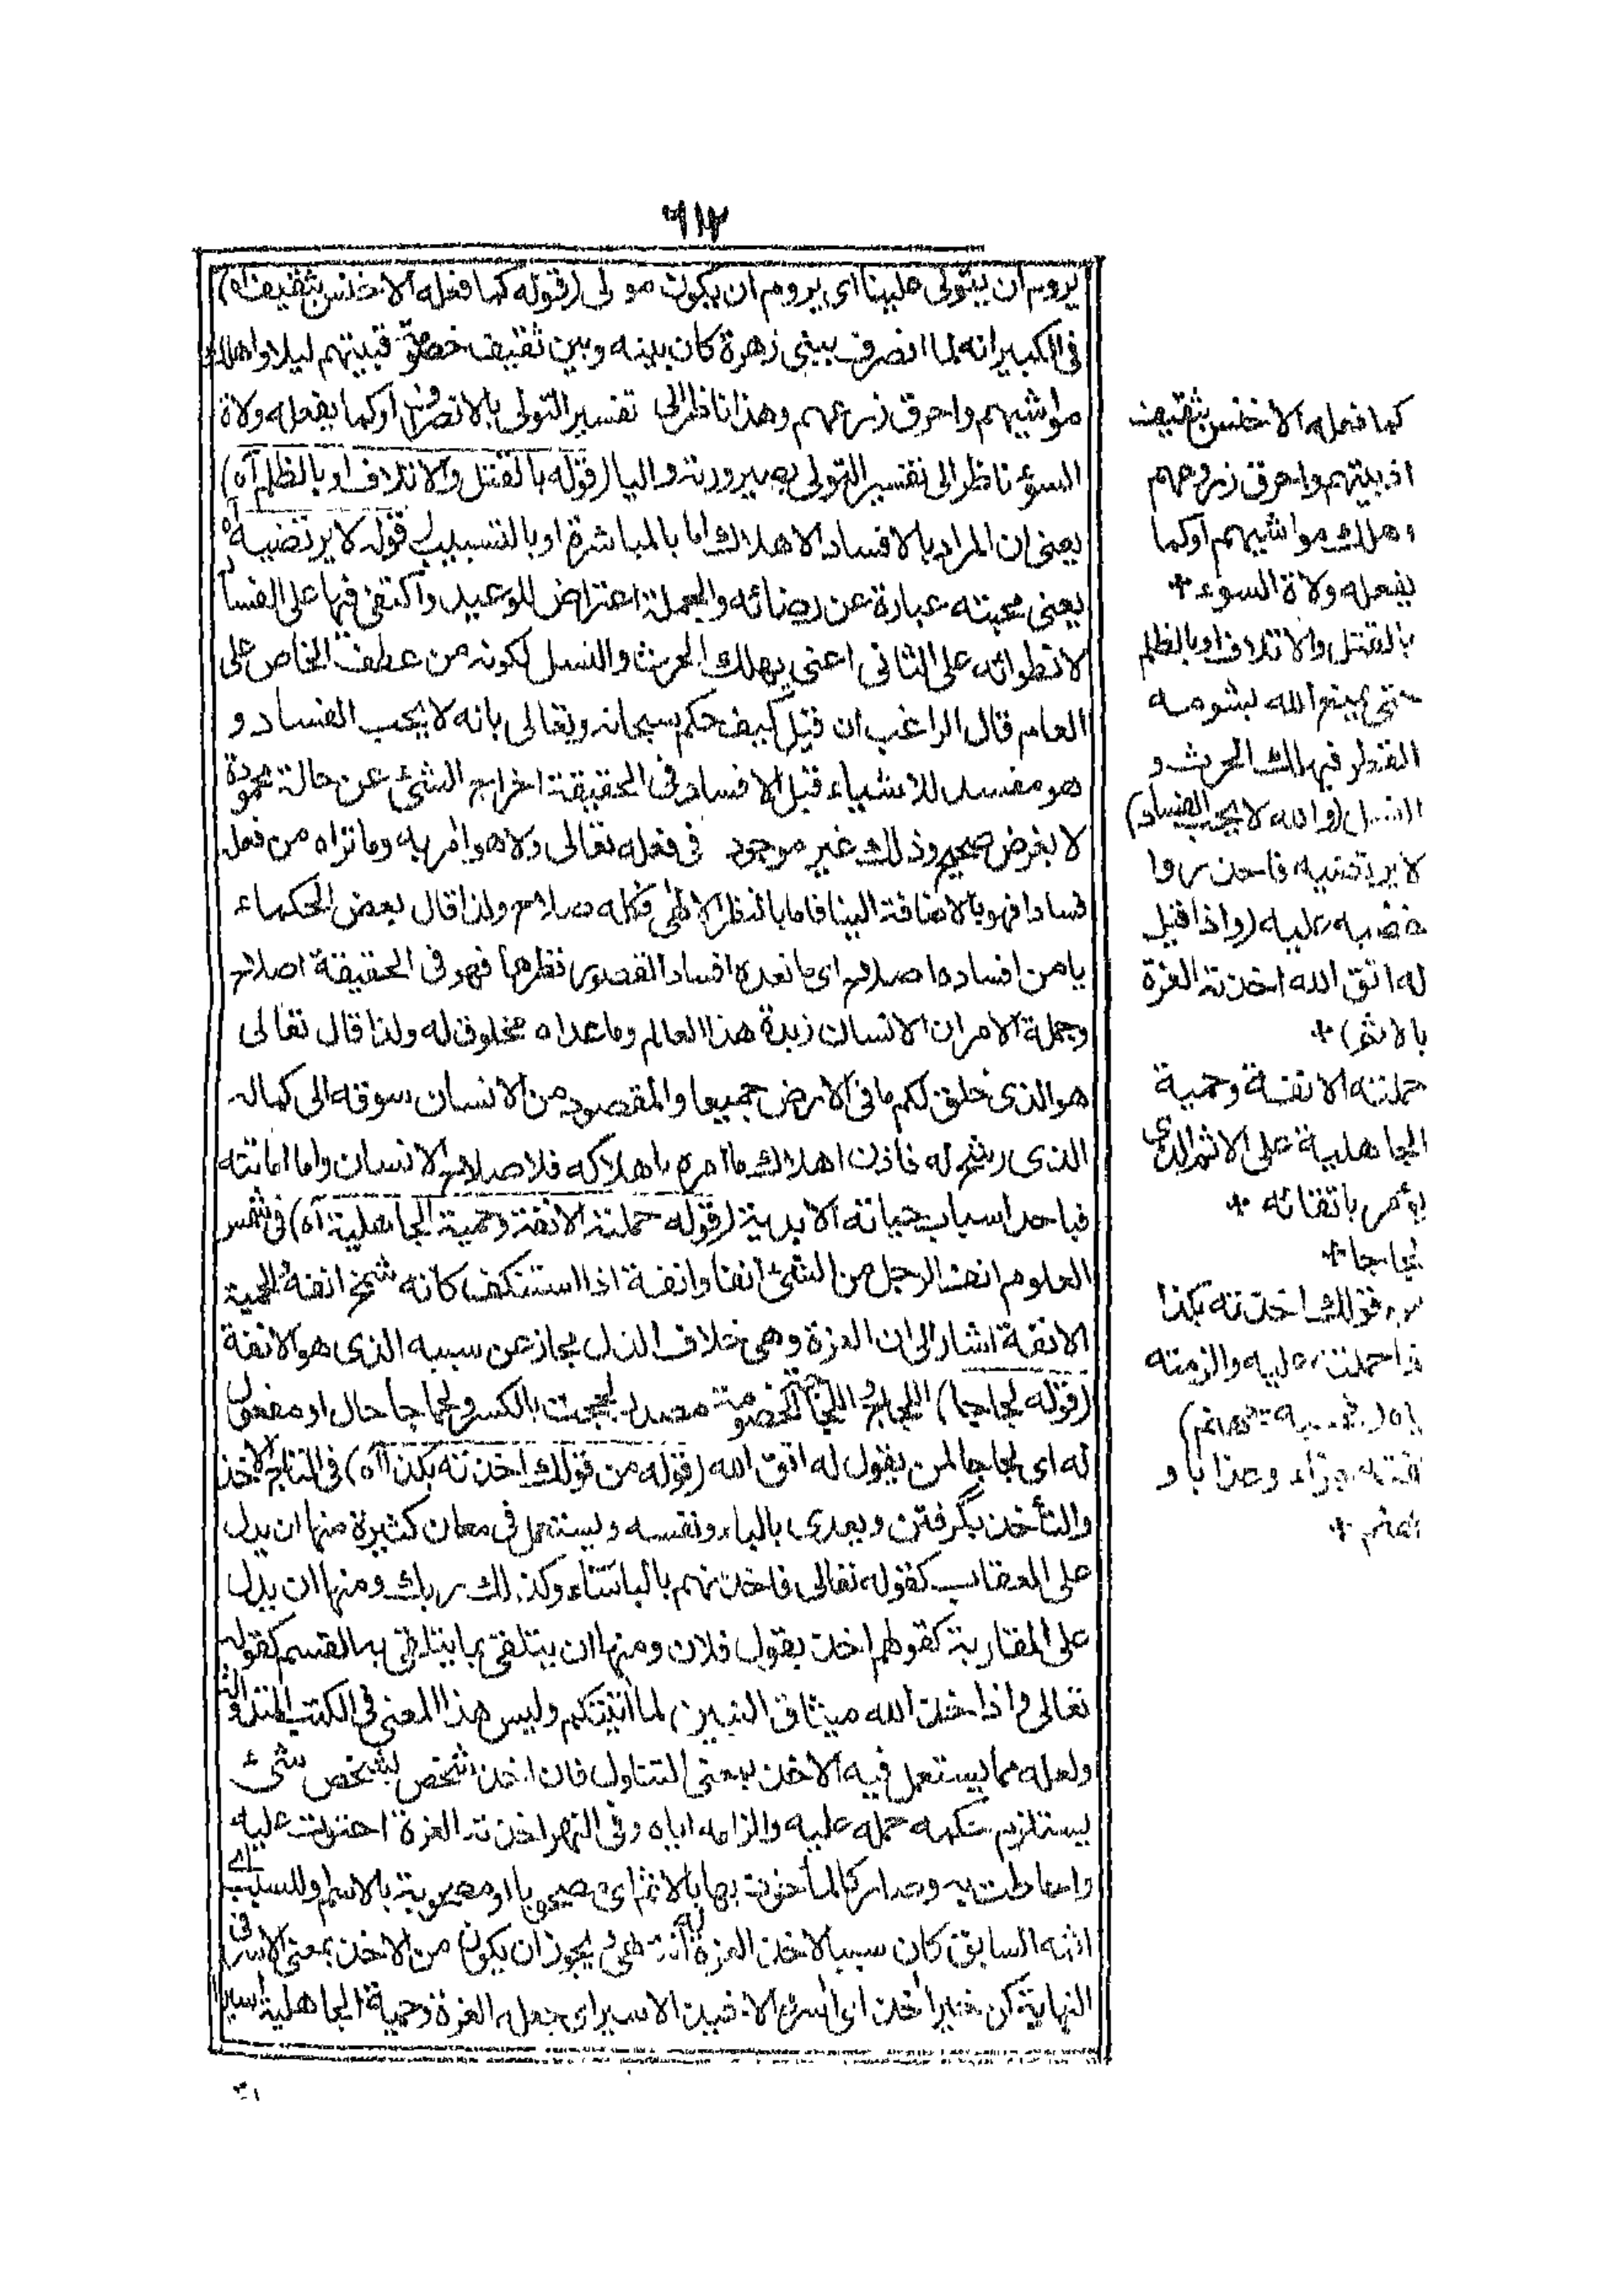 ٦١٢
يروم ان يتولى علينا اى يروم ان يكون مولى (قوله كما فعله الاخنس بثقيف اه)
فى الكبير انه لما انصرف ببنى زهرة كان بينه وبين ثقيف خصومة فبيتهم ليلا واهلك
مواشيهم واحرق زرعهم وهذا ناظر الى تفسير التولى بالانصراف او كما يفعله ولاة
السوء ناظر الى تفسير التولى بصيرورته واليا (قوله بالقتل والاتلاف او بالظلم آه)
يعنى ان المراد بالافساد الاهلاك اما بالمباشرة او بالتسبيب قوله لا يرتضيه اه
يعنى محبته عبارة عن رضائه والجملة اعتراض للوعيد واكتفى فيها على الفساد
لانطوائه على الثانى اعنى يهلك الحرث والنسل لكونه من عطف الخاص على
العام قال الراغب ان قيل كيف حكم سبحانه وتعالى بانه لا يحب الفساد و
هو مفسد للاشياء قيل الافساد فى الحقيقة اخراج الشئ عن حالة محمودة
لا بغرض صحيح وذلك غير موجود فى فعله تعالى ولا هو امر به وما نراه من فعله
فسادا فهو بالاضافة الينا فاما بالنظر الالهى فكله صلاح ولذا قال بعض الحكماء
يا من افساده اصلاح اى ما نعده افساد القصور نظرها فهو فى الحقيقة اصلاح
وجملة الامر ان الانسان زبدة هذا العالم وما عداه مخلوق له ولذا قال تعالى
هو الذى خلق لكم ما فى الارض جميعا والمقصود من الانسان سوقه الى كماله
الذى رشح له فاذن اهلاك ما امر باهلاكه فلاصلاح الانسان واما اماتته
فباحد اسباب حياته الابدية (قوله حملته الانفة وحمية الجاهلية آه) فى شمس
العلوم انف الرجل من الشئ انفا وانفة اذا استنكف كانه شمخ انفه الحمية
الانفة اشار الى ان العزة وهى خلاف الذل مجاز عن سببه الذى هو الانفة
(قوله لجاجا) اللجاج الخصومة مصدر لججت بالكسر ولجاجا حال او مفعول
له اى لجاجا لمن يقول له اتق الله (قوله من قولك اخذته بكذا آه) فى التاج الاخذ
والتأخذ بگرفتن ويعدى بالباء ونفسه ويستعمل فى معان كثيرة منها ان يدل
على العقاب كقوله تعالى فاخذنهم بالباساء وكذلك ربك ومنها ان يدل
على المقاربة كقولهم اخذ يقول فلان ومنها ان يتلقى بما يتلقى به القسم كقوله
تعالى واذا خذ الله ميثاق النبين لما آتيتكم وليس هذا المعنى فى الكتب المتداولة
ولعله مما يستعمل فيه الاخذ بمعنى التناول فان اخذ شخص لشخص شئ
يستلزم حمله عليه والزامه اياه وفى النهر اخذته العزة احتوت عليه
واحاطت به وصار كالمأخوذ بها بالاثم اى مصحوبا او مصحوبة بالاثم او للسبب اى
اثمه السابق كان سببا لاخذ العزة له انتهى ويجوز ان يكون من الاخذ بمعنى الاسر فى
النهاية كن خير اخذ اى اسر الاخيذ الاسير اى جعله العزة وحمية الجاهلية اسيرا
كما فعله الاخنس بثقيف
اذ بيتهم واحرق زروعهم
وهلك مواشيهم او كما
يفعله ولاة السوء +
بالقتل والاتلاف او بالظلم
حتى يمنع الله بشومه
القطر فيهلك الحرث و
النسل (والله لا يحب الفساد)
لا يرتضيه فاحذروا
غضبه عليه (واذا قيل
له اتق الله اخذته العزة
بالاثم) +
حملته الانفة وحمية
الجاهلية على الاثم الذى
يؤمر باتقائه +
لجاجا +
من قولك اخذته بكذا
اذا حملته عليه والزمته
اياه (فحسبه جهنم)
كفته جزاء وعذابا و
جهنم +